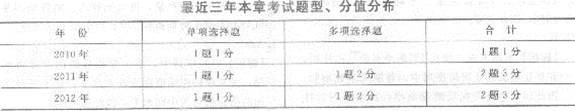 最近三年本章考试题型、分值分布
年 份 单项选择题 多项选择题 合 计
2010年 1题1分 1题1分
2011年 1题1分 1题2分 2题3分
2012年 1题1分 1题2分 2题3分